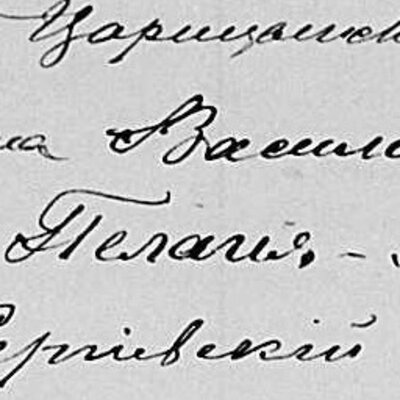 Царицанск
на Васили
Пелагия -
Сергіевскій